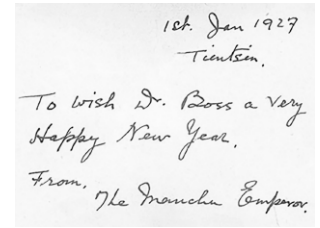 1st. Jan 1927
Tientsin.
To wish Dr. Boss a very
Happy New Year.
From.
The Manchu Emperor.